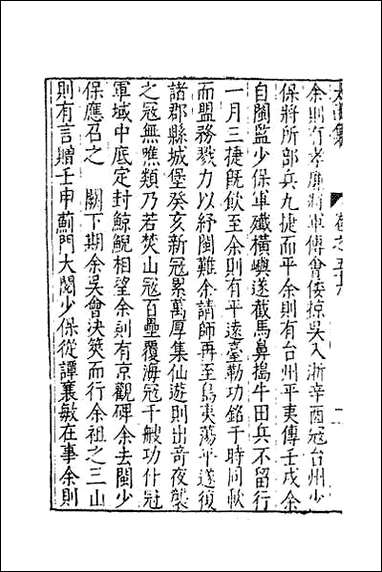 太函集 卷之五十八
余則有孝廉將軍傳會倭掠吳入浙辛酉寇台州少
保將所部兵九捷而平余則有台州平夷傳壬戌余
自閩監少保軍殲橫嶼遂截馬鼻搗牛田兵不留行
一月三捷既飲至余則有平遠臺勒功銘于時同歃
而盟務戮力以紓閩難余請師再至島夷蕩平遂復
諸郡縣城堡癸亥新寇累萬厚集仙遊則出奇夜襲
之寇無噍類乃若焚山寇百壘覆海寇千艘功什寇
軍域中底定封鯨鯢相望余則有京觀碑余去閩少
保應召之 闕下期余吳會決筴而行余祖之三山
則有言贈壬申薊門大閱少保從譚襄敏在事余則